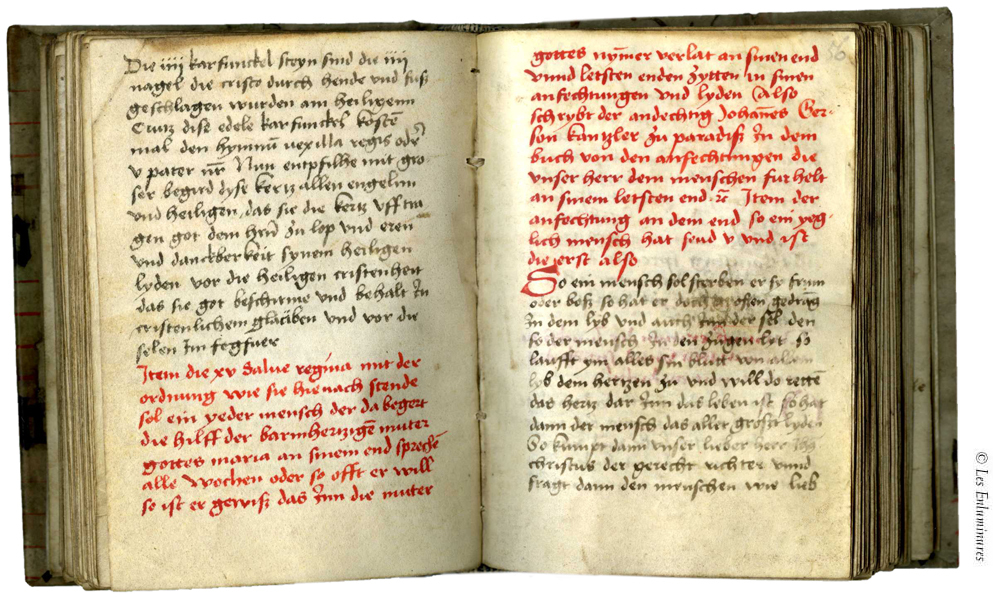 Die iiii karfunckel steyn sind die iiii
nagel die cristo durch hende vnd fuß
geschlagen wurden am heiligenn
Crutz dise edele karfunckel kosten
mal den hymnū vexilla regis oder
v pater nr̄ Nun entpfilhe mit gro
ser begird dyse kertz allen engelnn
vnd heiligen, das sie die kertz vff tra
gen got dem hrn̄ zu lop und eren
vnd danckberkeit synem heiligen
lyden vor die heiligen cristenheit
das sie got beschirme vnd behalt In
cristenlichem glauben vnd vor die
selen Im fegfuer
Item die xv Salue regina mit der
ordnung wie sie hienach stende
sol ein yeder mensch der da begert
die hilff der barmhertzigē muter
gottes maria an sinem end sprechē
alle wochen oder so offt er will
so ist er gewiß das Inn die muter
56
gottes nym̄er verlat an sinen end
vnnd letsten enden zytten in sinen
anfechtungen vnd lyden Also
schrybt der andechtig Johan̄es Ger-
son kantzler zu paradiß In dem
buch von den anfechtungen die
vnser herr dem menschen fur helt
an sinem letsten end ꝛc Item der
anfechtung an dem end so ein yeg-
lich mensch hat send v vnd ist
die erst also
So ein mensch sol sterben er sy frum
oder boß so hat er doch großen gedrāg
In dem lyb vnd auch Inn der sel den
so der mensch In den zugen lyt so
laufft ym alles sin blutt von allem
lyb dem hertzen zu vnd will do rettē
das hertz dar Inn das leben ist so hat
dann der mensch das aller grost lyden
So kumpt dann vnser lieber herr Ihs
christus der gerecht richter vnnd
fragt dann den menschen wie lieb
© Les Enluminures